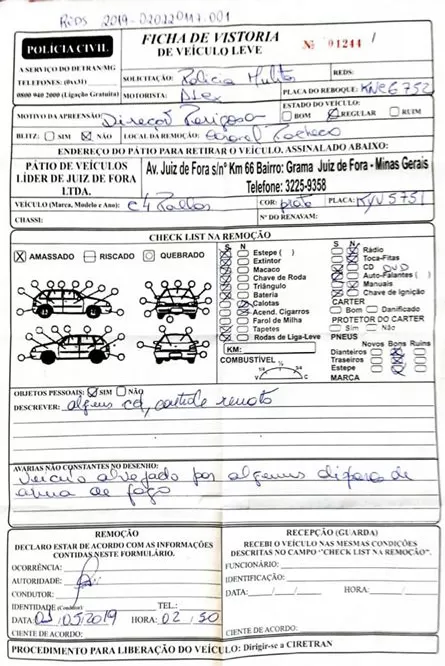 REDS 2019-020220117.001
POLÍCIA CIVIL
FICHA DE VISTORIA
DE VEÍCULO LEVE
Nº 01244
A SERVIÇO DO DETRAN/MG
TELEFONES: (0xx31)
0800 940 2000 (Ligação Gratuita)
SOLICITAÇÃO: Polícia Militar REDS:
MOTORISTA: Alex PLACA DO REBOQUE:
MOTIVO DA APREENSÃO: Direção Perigosa
ESTADO DO VEÍCULO:
BOM REGULAR RUIM
BLITZ: SIM NÃO LOCAL DA REMOÇÃO: Pacheco
ENDEREÇO DO PÁTIO PARA RETIRAR O VEÍCULO, ASSINALADO ABAIXO:
PÁTIO DE VEÍCULOS
LÍDER DE JUIZ DE FORA
LTDA.
Av. Juiz de Fora s/nº Km 66 Bairro: Grama Juiz de Fora - Minas Gerais
Telefone: 3225-9358
VEÍCULO (Marca, Modelo e Ano): C4 Pallas COR: prata PLACA: KYV5751
CHASSI: Nº DO RENAVAM:
CHECK LIST NA REMOÇÃO
X AMASSADO RISCADO QUEBRADO
S N
Estepe ( )
Extintor
Macaco
Chave de Roda
Triângulo
Bateria
Calotas
Acend. Cigarros
Farol de Milha
Tapetes
Rodas de Liga-Leve
KM:
COMBUSTÍVEL
1/4 1/2 3/4
V C
S N
Rádio
Toca-Fitas
CD DVD
Auto-Falantes ( )
Manuais
Chave de Ignição
CARTER
Bom Danificado
PROTETOR DO CARTER
Sim Não
PNEUS
Novos Bons Ruins
Dianteiros
Traseiros
Estepe
MARCA
OBJETOS PESSOAIS: SIM NÃO
DESCREVER: alguns cd, controle remoto
AVARIAS NÃO CONSTANTES NO DESENHO:
Veículo alvejado por alguns disparo de
arma de fogo
REMOÇÃO
DECLARO ESTAR DE ACORDO COM AS INFORMAÇÕES
CONTIDAS NESTE FORMULÁRIO.
OCORRÊNCIA:
AUTORIDADE:
CONDUTOR:
IDENTIDADE (Condutor) TEL.:
DATA: 01/05/2019 HORA: 02 50
CIENTE DE ACORDO:
RECEPÇÃO (GUARDA)
RECEBI O VEÍCULO NAS MESMAS CONDIÇÕES
DESCRITAS NO CAMPO "CHECK LIST NA REMOÇÃO".
FUNCIONÁRIO:
IDENTIFICAÇÃO:
DATA: / / HORA:
CIENTE DE ACORDO:
PROCEDIMENTO PARA LIBERAÇÃO DO VEÍCULO: Dirigir-se a CIRETRAN